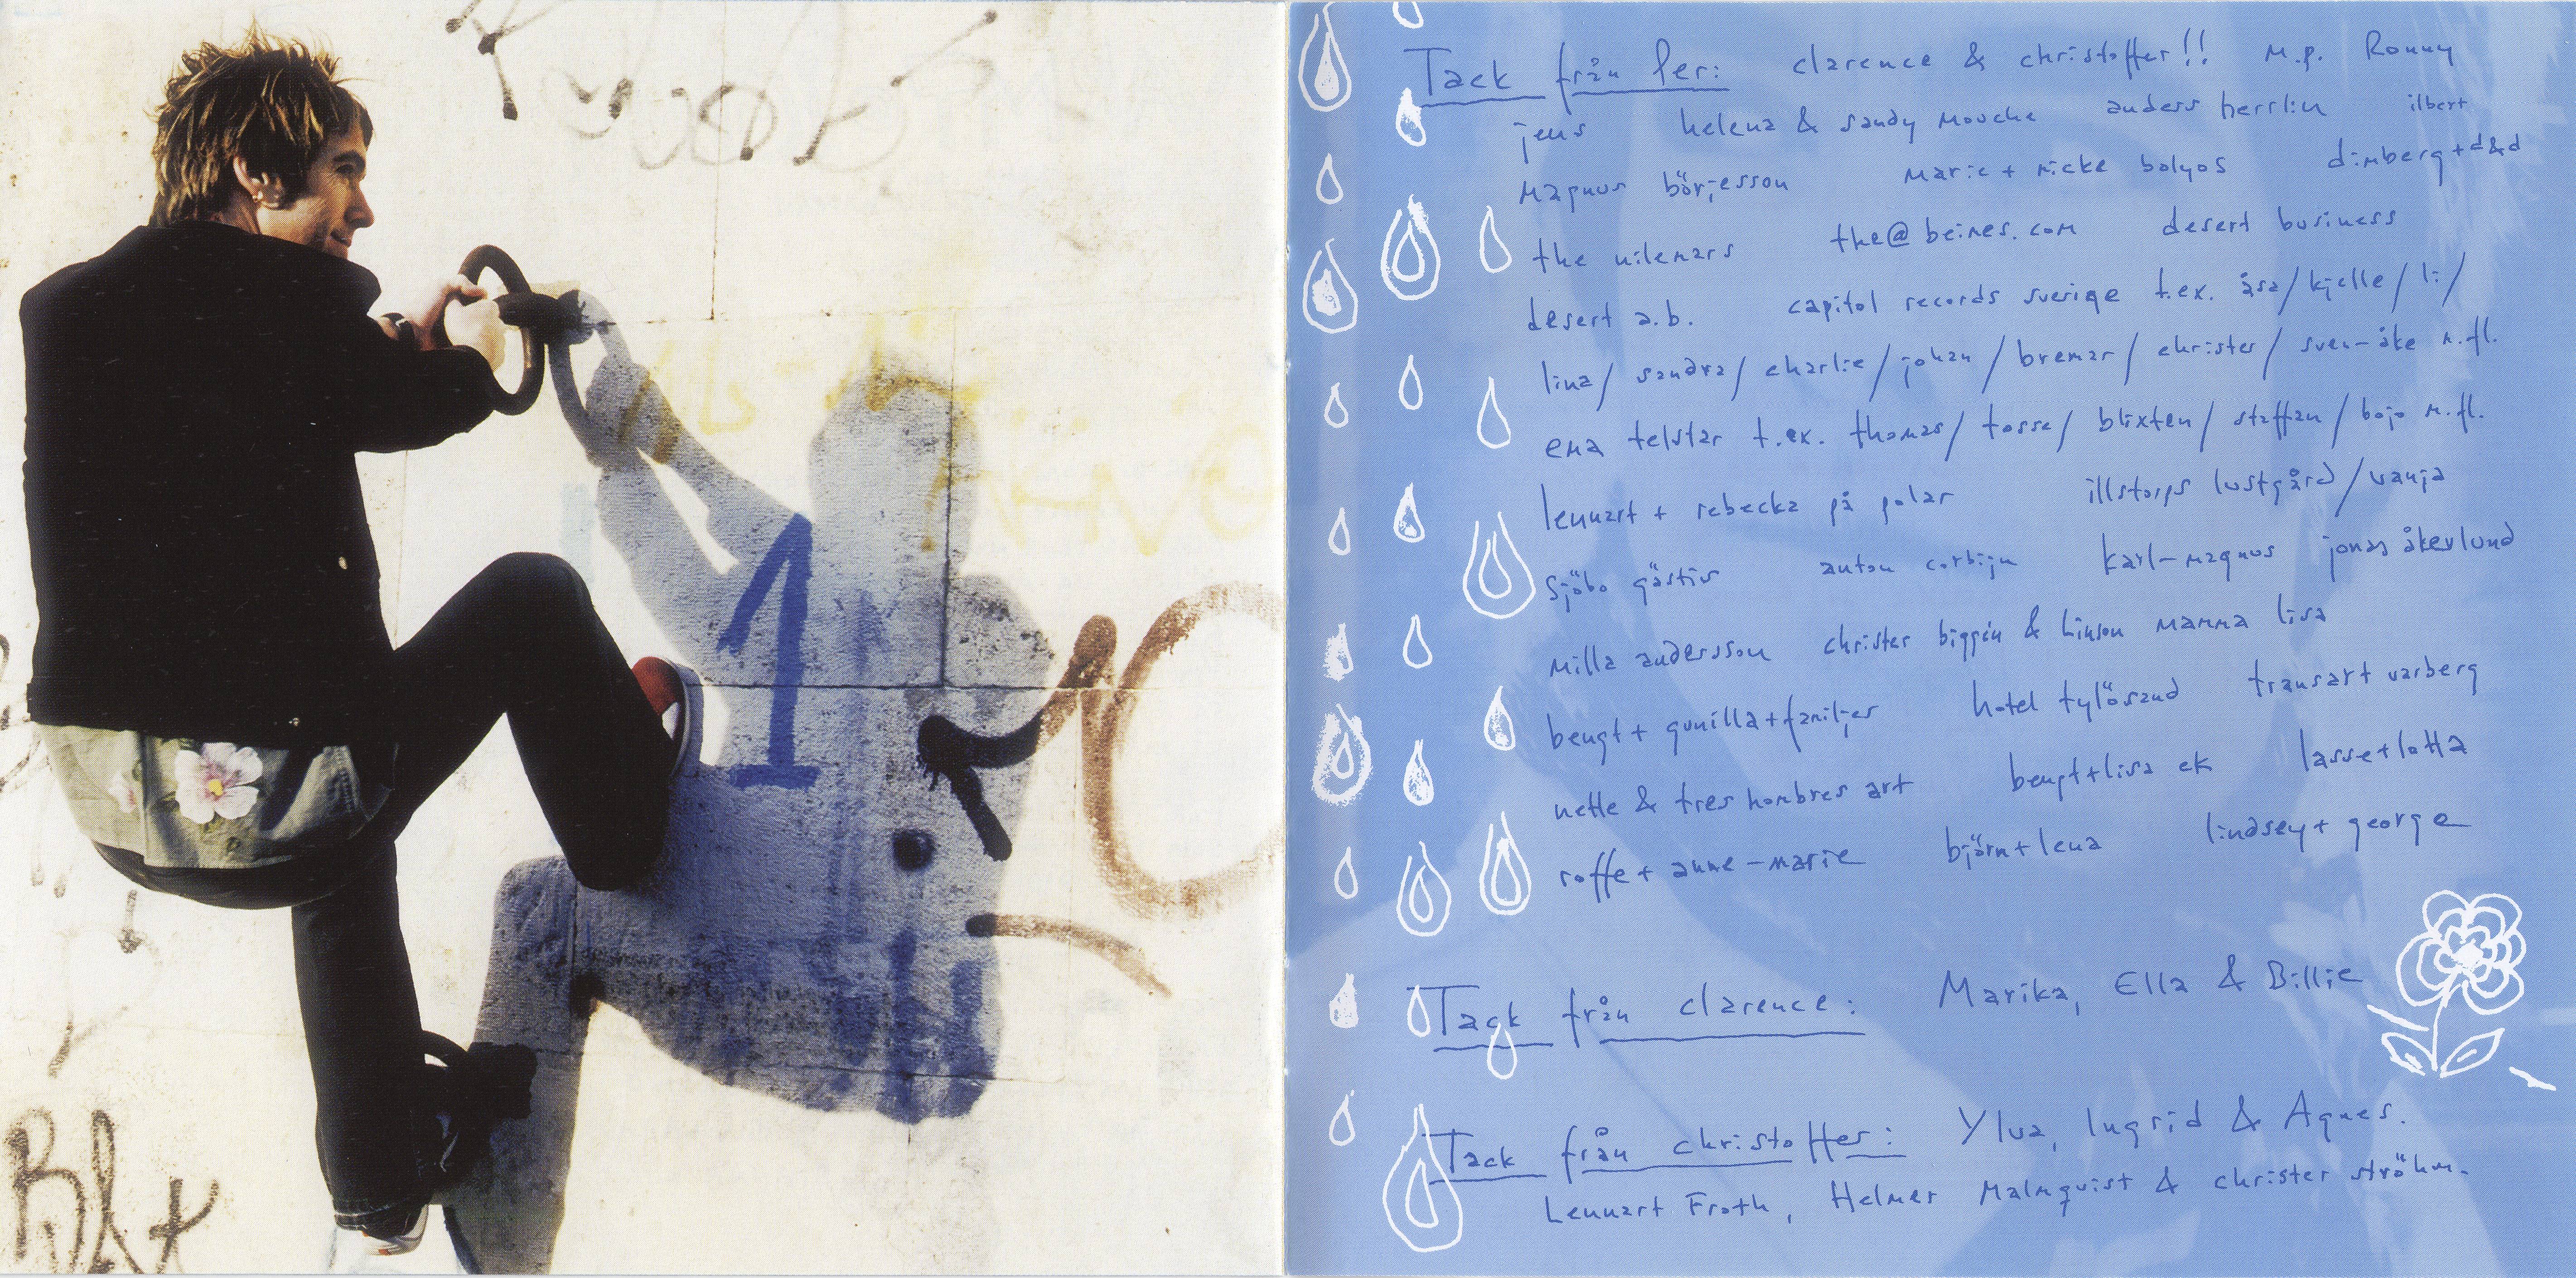 1
Tack från Per: clarence & christoffer!! m.p. Ronny
jens helena & sandy mouche anders herrlin ilbert
magnus börjesson marie + micke bolyos dimberg + d&d
the nilemars the@beines.com desert business
desert a.b. capitol records sverige t.ex. åsa/kjelle/li/
lina/ sandra/ charlie/ johan/ bremar/ christer/ sven-åke m.fl.
ema telstar t.ex. thomas/ tosse/ blixten/ staffan/ bojo m.fl.
lennart + rebecka på polar illstorps lustgård/vanja
sjöbo gästis anton corbijn karl-magnus jonas åkerlund
milla andersson christer biggin & linson mamma lisa
bengt + gunilla + familjer hotel tylösand transart varberg
nette & tres hombres art bengt+lisa ek lasse+lotta
roffe + anne-marie björn+lena lindsey + george
Tack från clarence: Marika, Ella & Billie
Tack från christoffer: Ylva, Ingrid & Agnes.
Lennart Froth, Helmer Malmquist & christer ströhm.